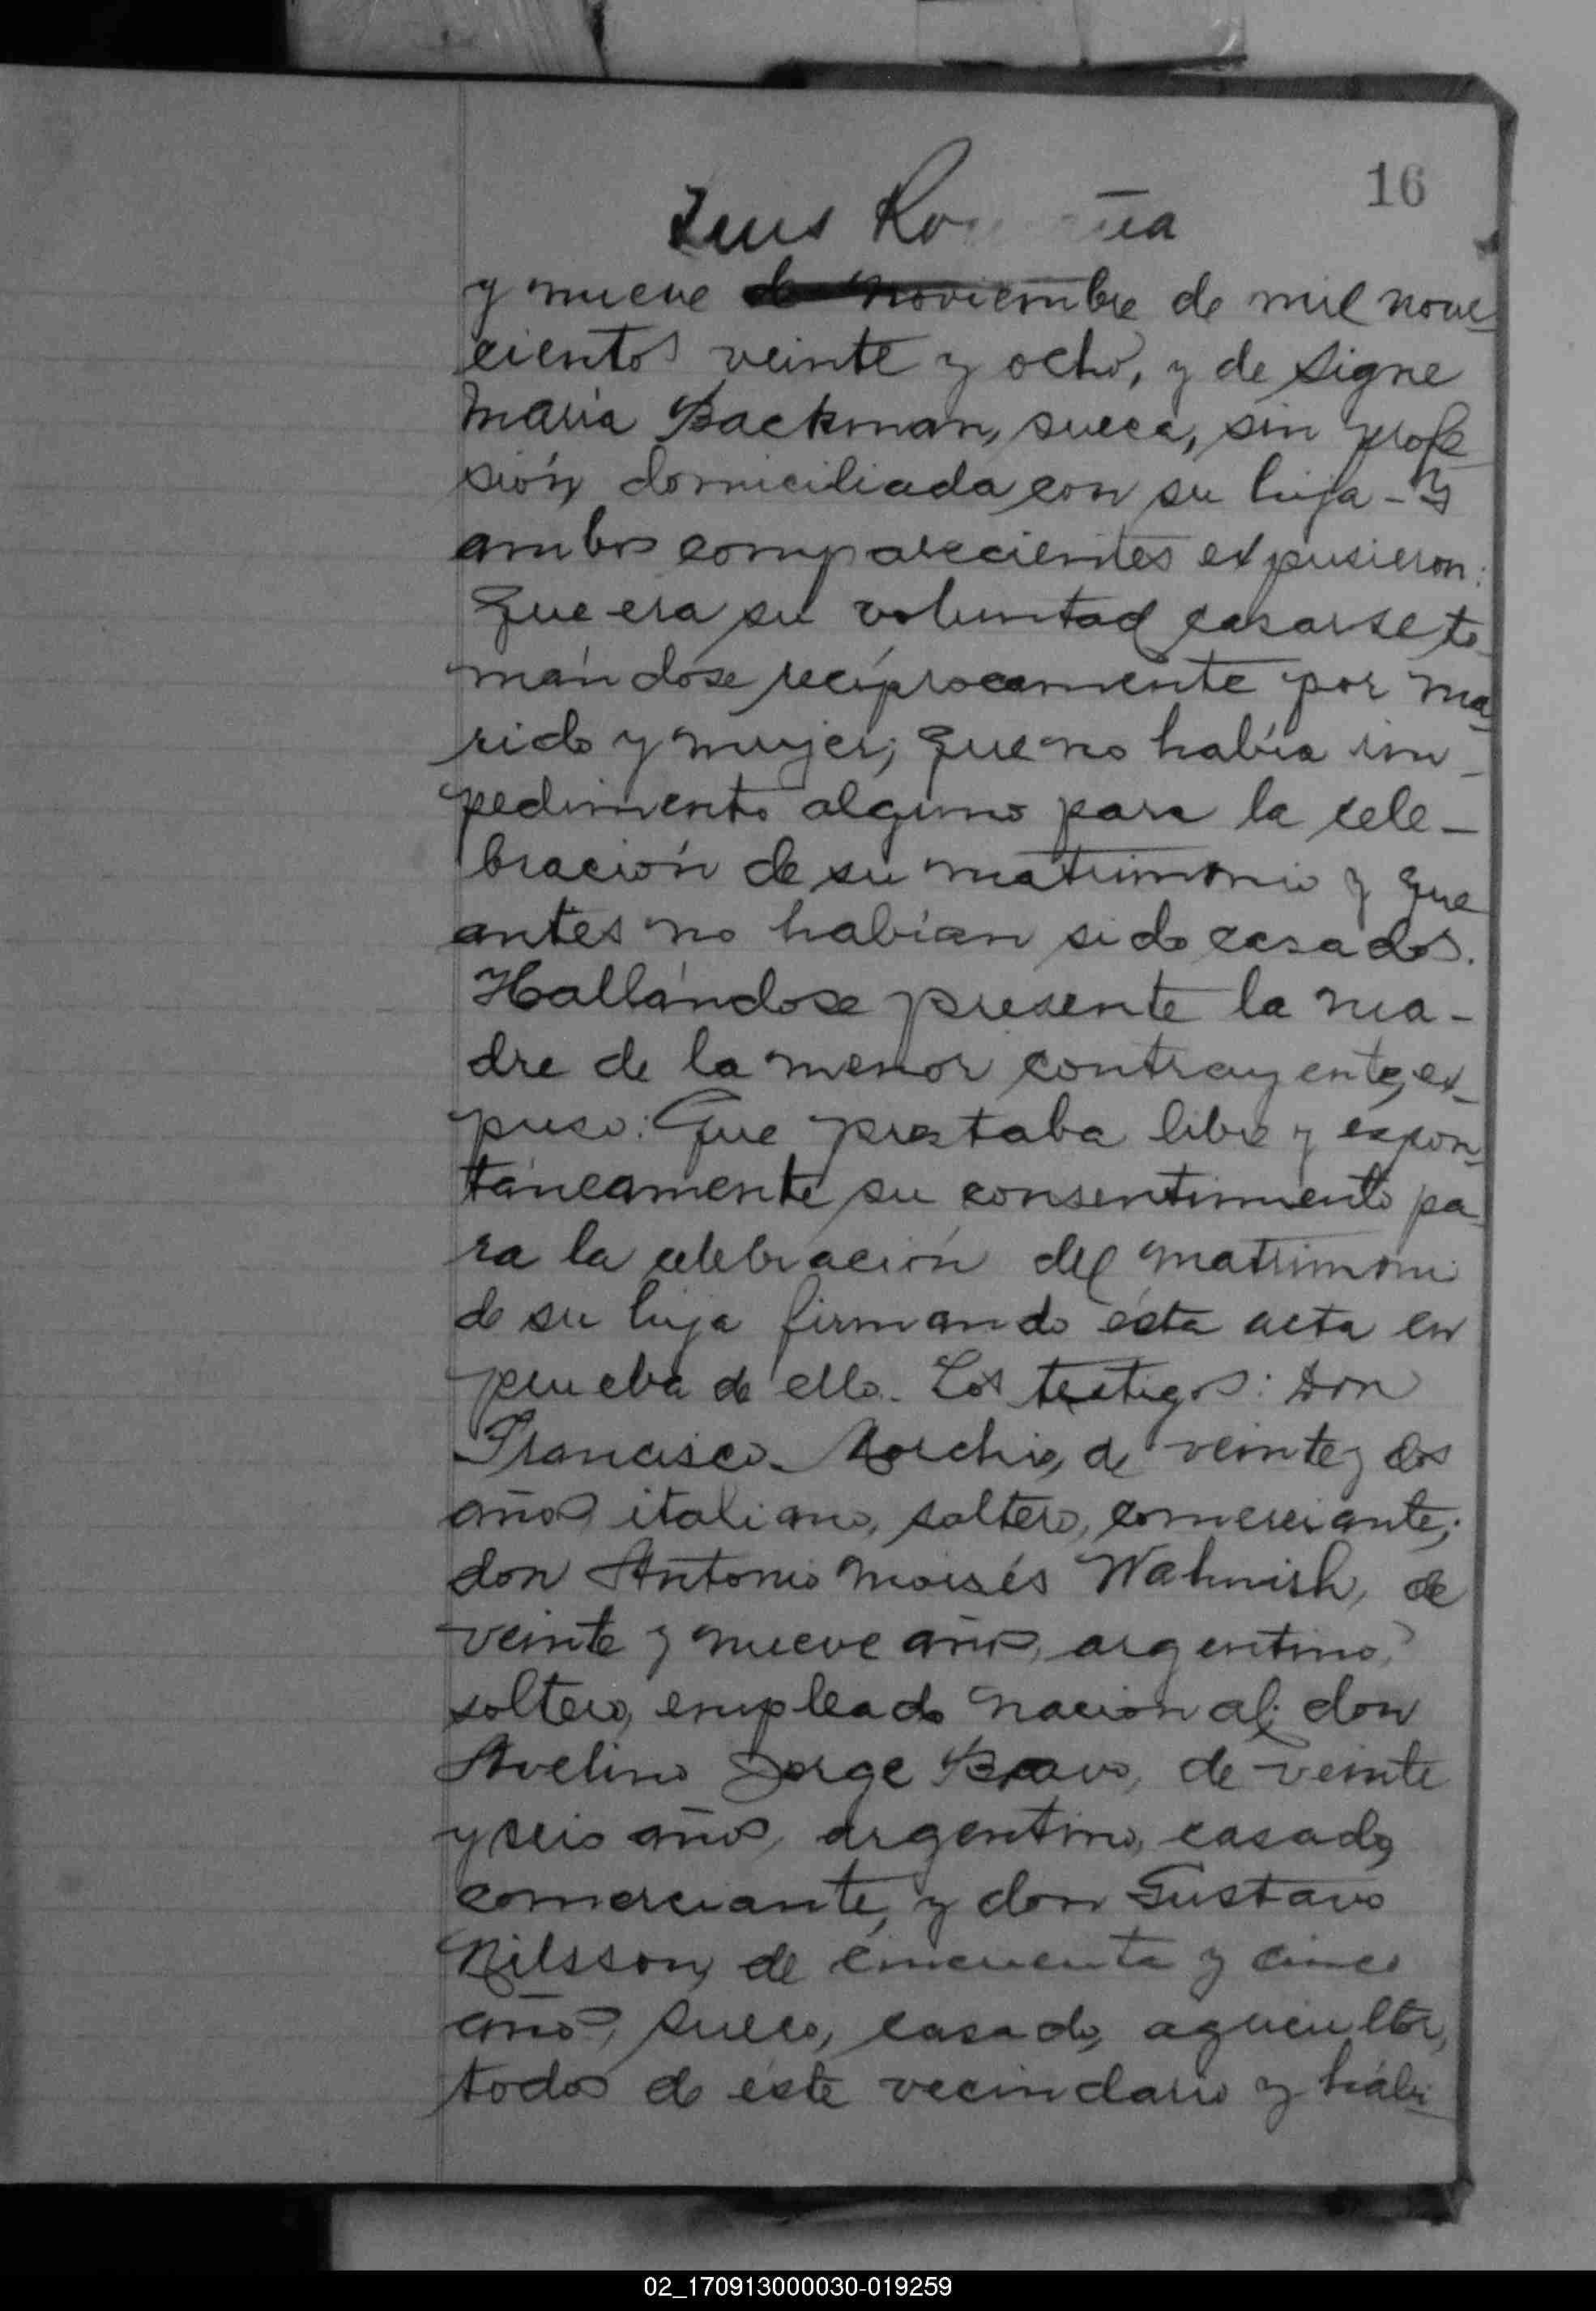 16
Luis
y nueve de noviembre de mil nove-
cientos veinte y ocho, y de Signe
María Backman, sueca, sin profe-
sión, domiciliada con su hija - Y
ambos comparecientes expusieron:
Que era su voluntad casarse to-
mándose recíprocamente por ma-
rido y mujer; que no había im-
pedimento alguno para la cele-
bración de su matrimonio y que
antes no habían sido casados.
Hallándose presente la ma-
dre de la menor contrayente, ex-
puso: Que prestaba libre y espon-
táneamente su consentimiento pa-
ra la celebración del matrimonio
de su hija firmando ésta acta en
prueba de ello. Los testigos: Don
Francisco Morchio, de veinte y dos
años, italiano, soltero, comerciante;
don Antonio Moisés Wahnish, de
veinte y nueve años, argentino,
soltero, empleado nacional; don
Avelino Jorge Bravo, de veinte
y seis años, argentino, casado,
comerciante, y don Gustavo
Nilsson, de cincuenta y cinco
años, sueco, casado, agricultor,
todos de éste vecindario y hábi-
02_170913000030-019259